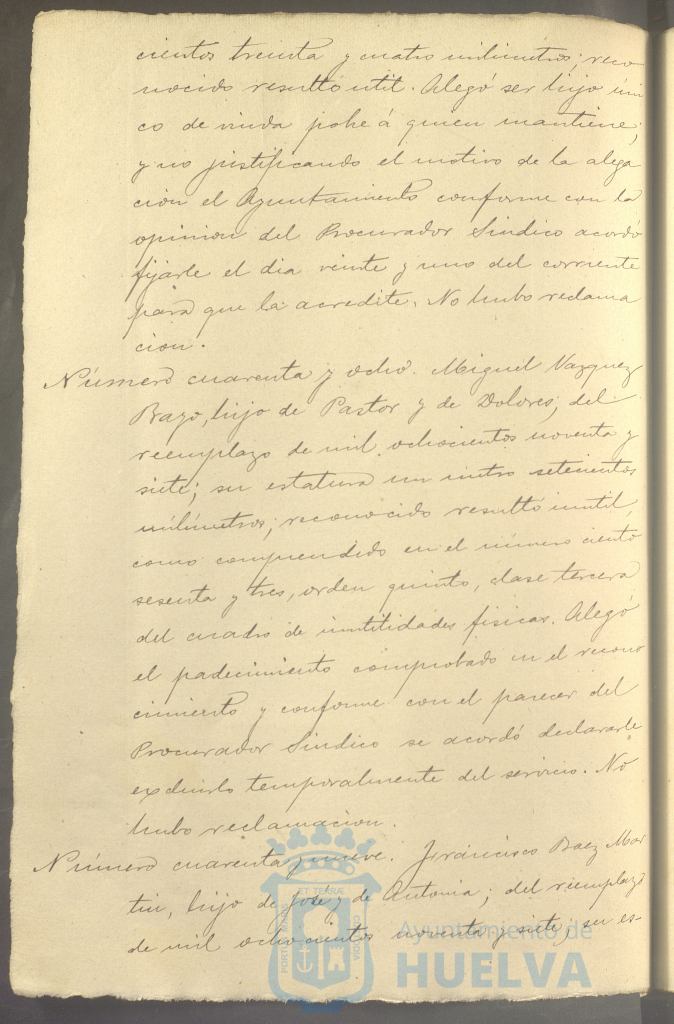 cientos treinta y cuatro milimetros; reco
nocido resultó util. Alegó ser hijo úni
co de viuda pobre á quien mantiene;
y no justificando el motivo de la alega
cion el Ayuntamiento conforme con la
opinion del Procurador Sindico acordó
fijarle el dia veinte y uno del corriente
para que la acredite. No hubo reclama
cion.
Número cuarenta y ocho. Miguel Vazquez
Bayo, hijo de Pastor y de Dolores, del
reemplazo de mil ochocientos noventa y
siete; su estatura un metro setecientos
milimetros; reconocido resultó inutil,
como comprendido en el número ciento
sesenta y tres, orden quinto, clase tercera
del cuadro de inutilidades fisicas. Alegó
el padecimiento comprobado en el recono
cimiento y conforme con el parecer del
Procurador Sindico se acordó declararle
excluirlo temporalmente del servicio. No
hubo reclamacion.
Número cuarenta y nueve. Francisco Baez Mar
tin, hijo de José y de Antonia; del reemplazo
de mil ochocientos noventa y siete; su es-
ET TERRÆ
PORTUS MARIS
CUSTODIA
Ayuntamiento de
HUELVA